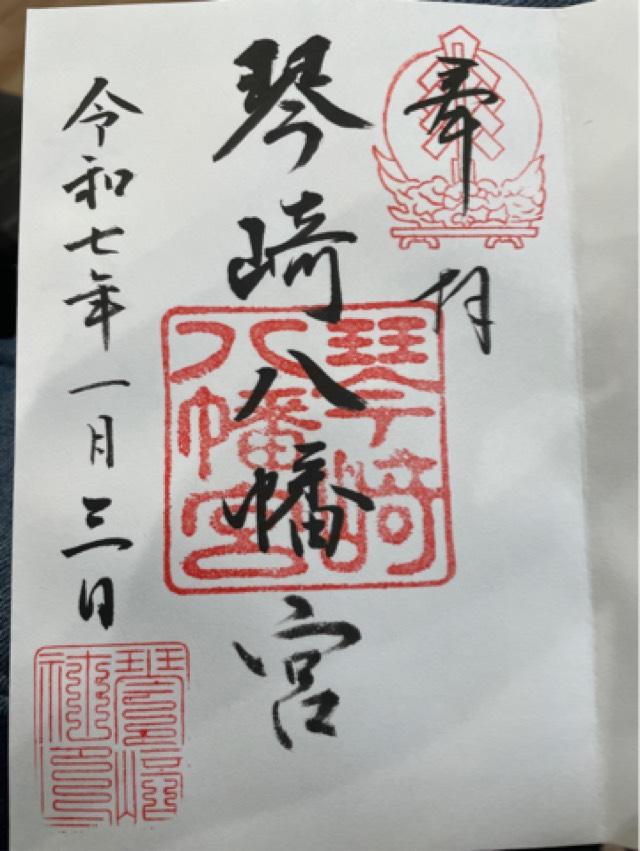 奉拝
琴崎八幡宮
琴崎
八幡宮
令和七年一月三日